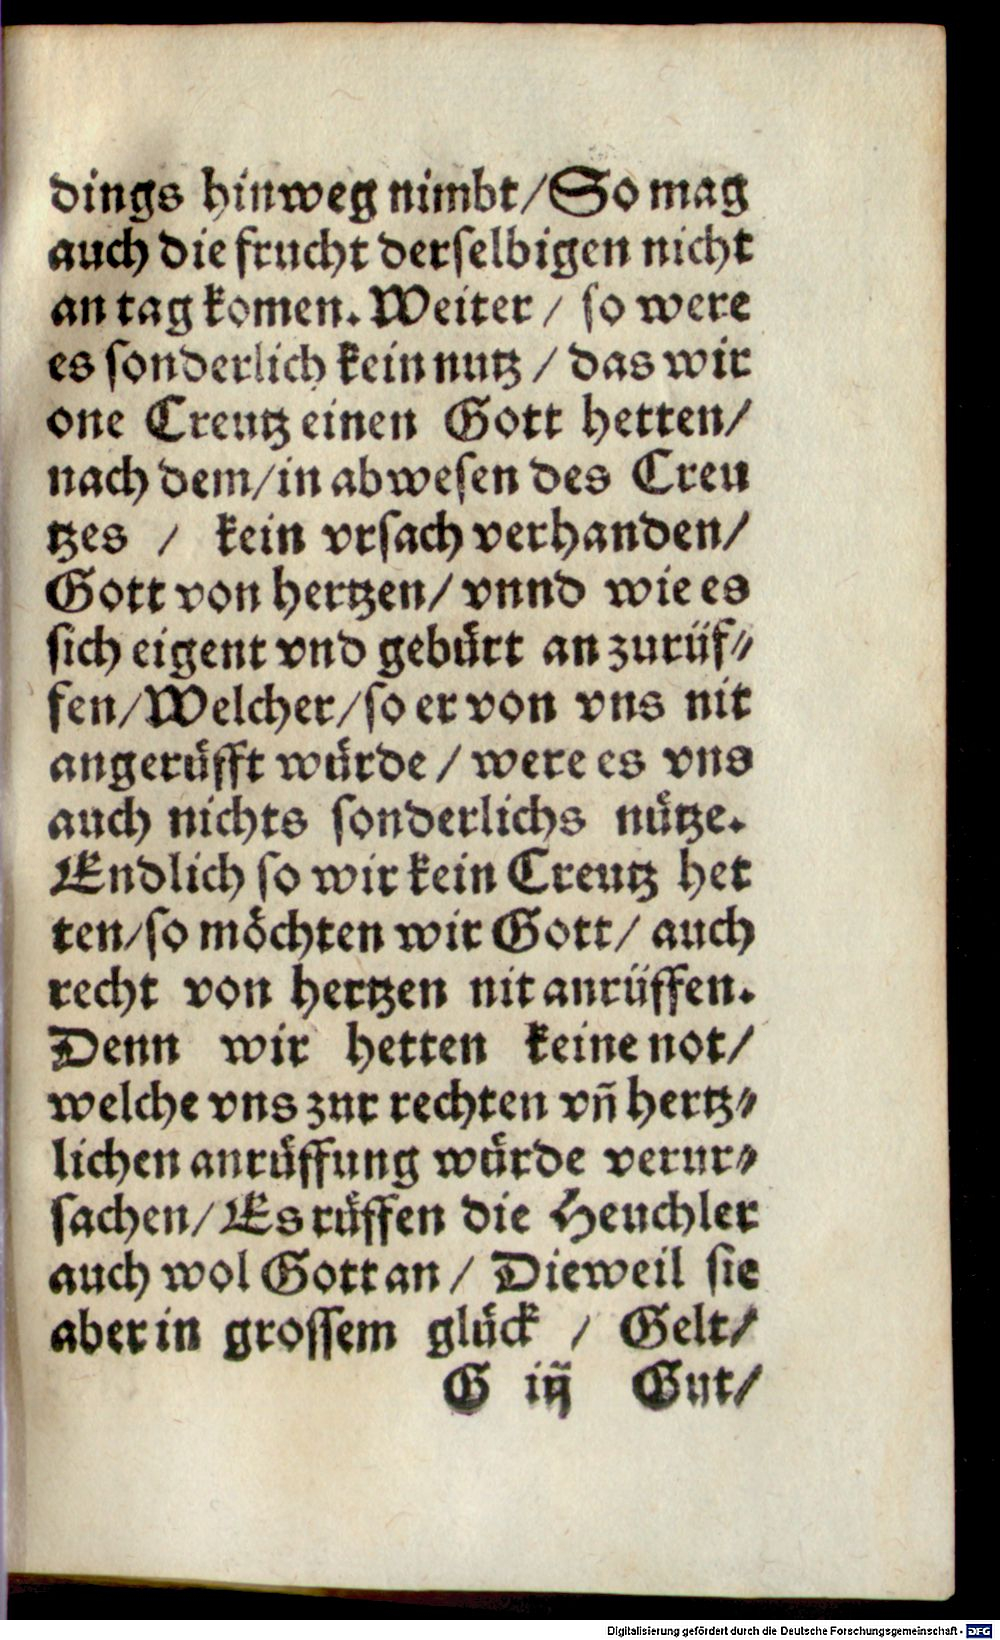 dings hinweg nimbt/ So mag
auch die frucht derselbigen nicht
an tag komen. Weiter/ so were
es sonderlich kein nutz/ das wir
one Creutz einen Gott hetten/
nach dem/ in abwesen des Creu
tzes / kein vrsach verhanden/
Gott von hertzen/ vnnd wie es
sich eigent vnd gebürt an zurüf⸗
fen/ Welcher/ so er von vns nit
angerüfft würde/ were es vns
auch nichts sonderlichs nütze.
Endlich so wir kein Creutz het
ten/ so möchten wir Gott/ auch
recht von hertzen nit anrüffen.
Denn wir hetten keine not/
welche vns zur rechten vñ hertz⸗
lichen anrüffung würde verur⸗
sachen/ Es rüffen die Heuchler
auch wol Gott an/ Dieweil sie
aber in grossem glück / Gelt/
G iij Gut/
Digitalisierung gefördert durch die Deutsche Forschungsgemeinschaft - DFG